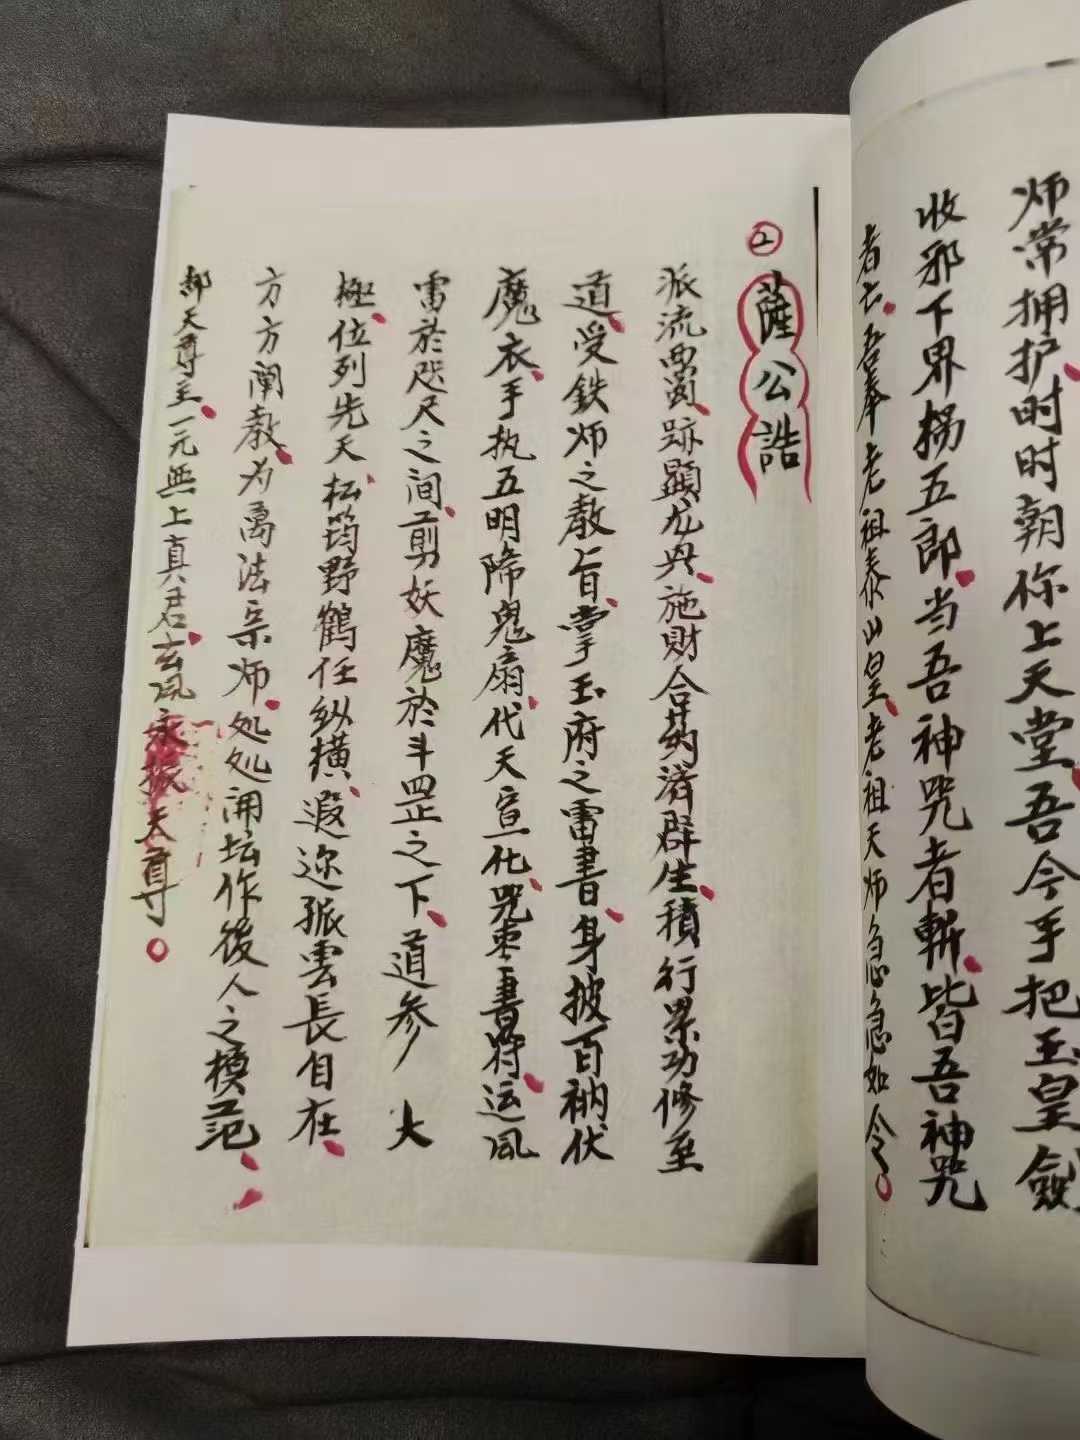 师常拥护时时朝你上天堂吾今手把玉皇劍
收邪下界拐五郎当吾神咒者斬皆吾神咒
者亡吾奉老祖泰山皇老祖天师急急如令
②薩公誥
派流西蜀跡顕龙兴施財合药济群生積行累功修至
道受鉄师之教旨掌玉府之雷書身披百衲伏
魔衣手执五明降鬼扇代天宣化咒枣書符运风
雷於咫尺之间剪妖魔於斗罡之下道参太
極位列先天松筠野鶴任纵横遐迩孤雲長自在
方方阐教为萬法宗师处处開坛作後人之模范
都天尊主一元無上真君玄风永振天尊